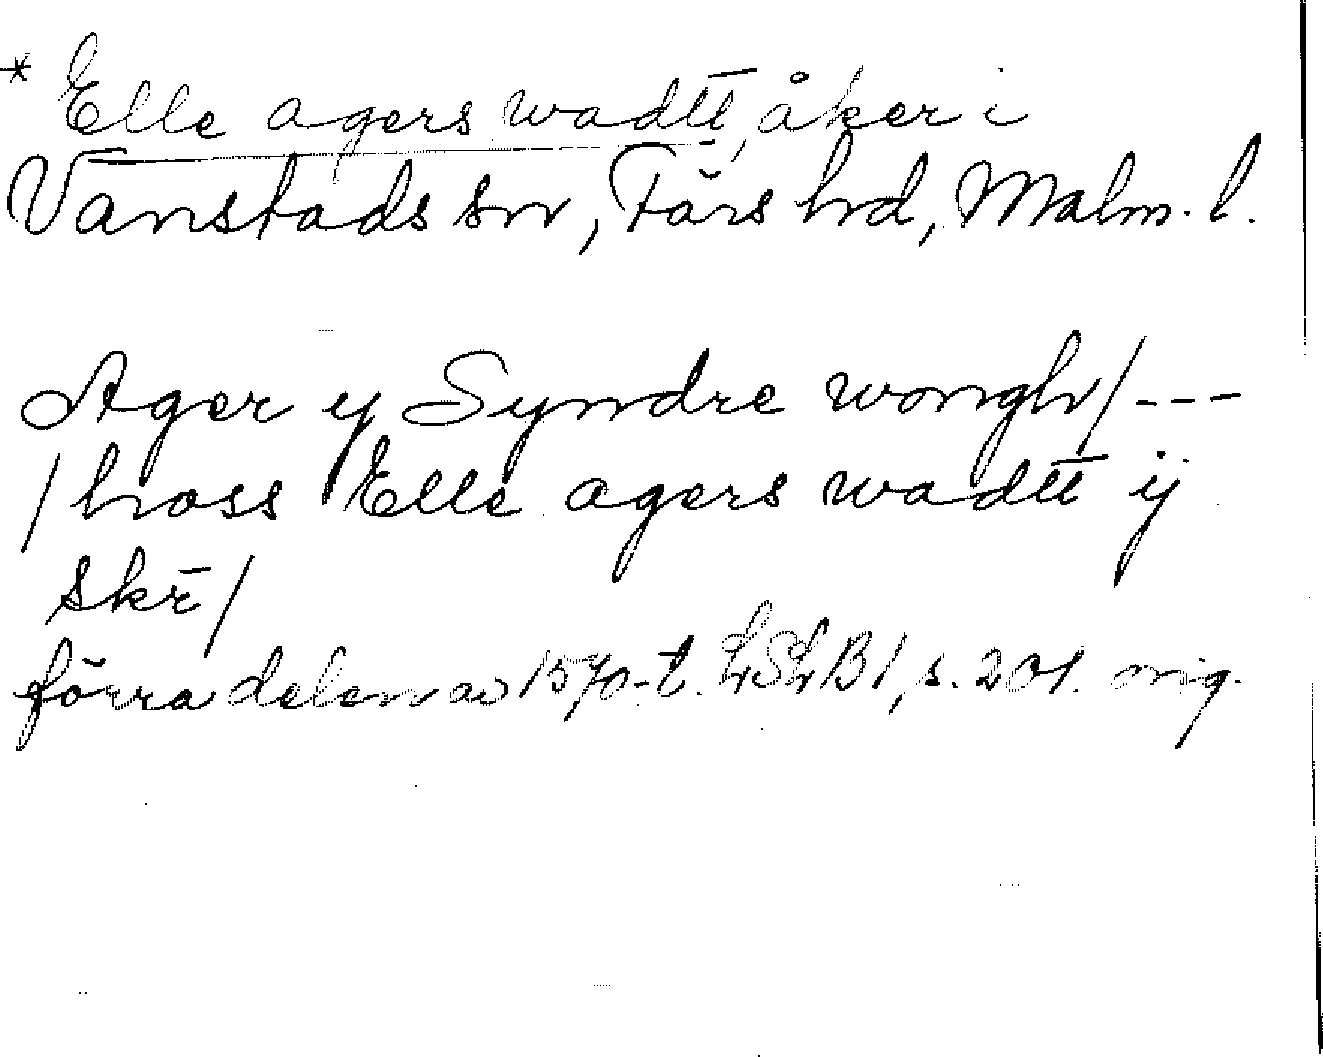 * Elle agers wadtt̄, åker i
Vanstads sn, Färs hd, Malm. l.
Ager y Syndre wongh / ---
/ hoss Elle agers wadtt̄ ÿ
skr̄ /
förra delen av 1570-t. LSLB 1, s. 201. orig.